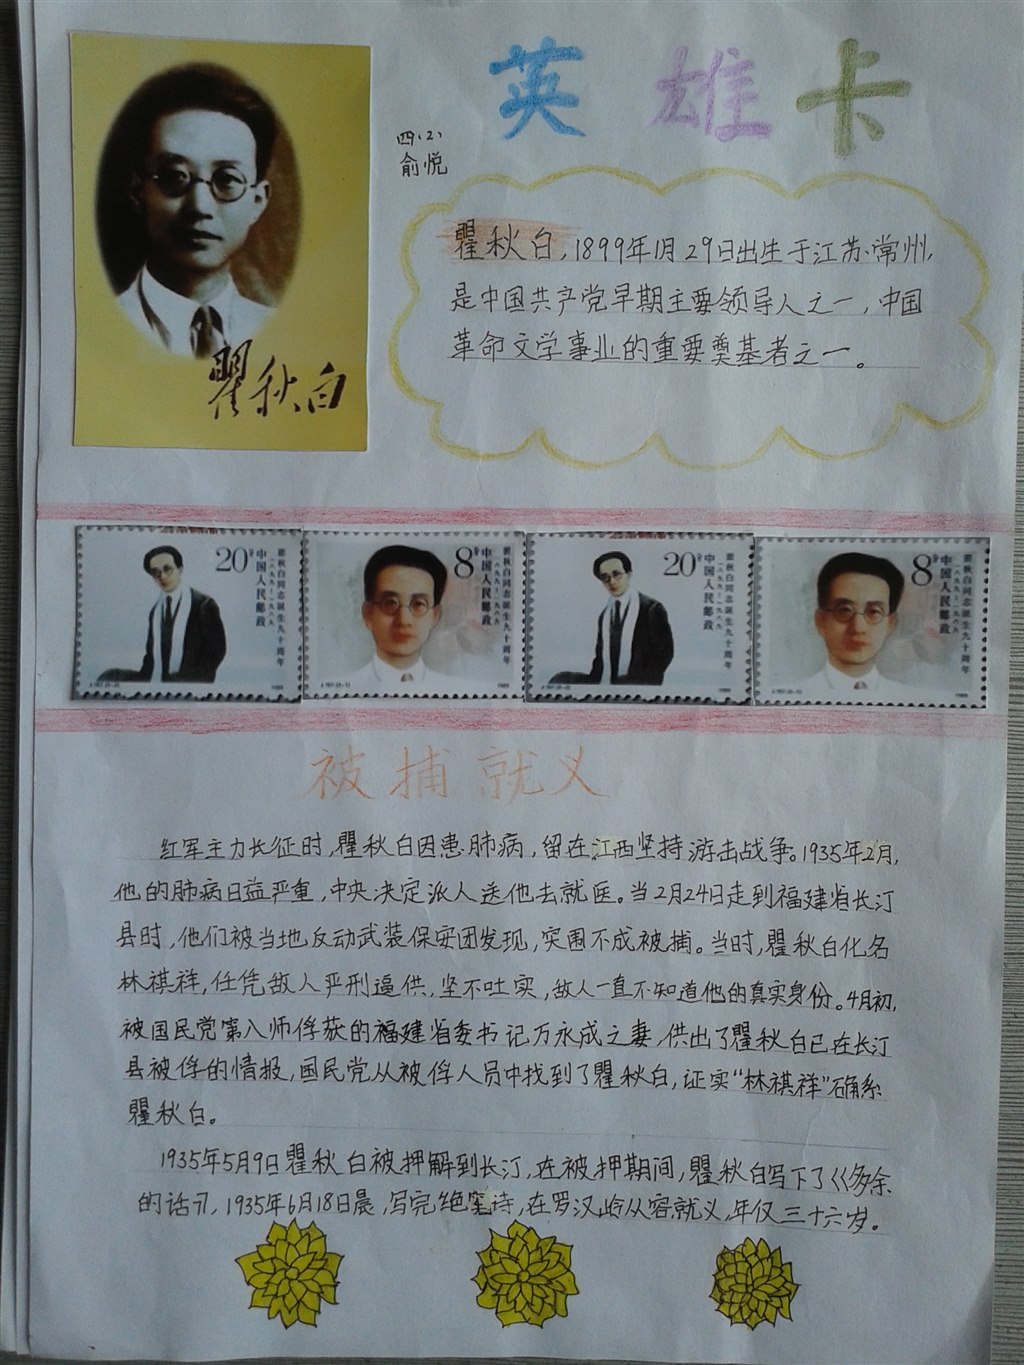 英雄卡
四(2)
俞悦
瞿秋白
瞿秋白,1899年1月29日出生于江苏常州,
是中国共产党早期主要领导人之一,中国
革命文学事业的重要奠基者之一。
20分
中国人民邮政
瞿秋白同志诞生九十周年
一八九九——一九八九
8分
中国人民邮政
瞿秋白同志诞生九十周年
一八九九——一九八九
20分
中国人民邮政
瞿秋白同志诞生九十周年
一八九九——一九八九
8分
中国人民邮政
瞿秋白同志诞生九十周年
一八九九——一九八九
被捕就义
红军主力长征时,瞿秋白因患肺病,留在江西坚持游击战争。1935年2月,
他的肺病日益严重,中央决定派人送他去就医。当2月24日走到福建省长汀
县时,他们被当地反动武装保安团发现,突围不成被捕。当时,瞿秋白化名
林祺祥,任凭敌人严刑逼供,坚不吐实,敌人一直不知道他的真实身份。4月初,
被国民党第八师俘获的福建省委书记万永成之妻,供出了瞿秋白已在长汀
县被俘的情报,国民党从被俘人员中找到了瞿秋白,证实“林祺祥”确系
瞿秋白。
1935年5月9日瞿秋白被押解到长汀,在被押期间,瞿秋白写下了《多余
的话》,1935年6月18日晨,写完绝笔诗,在罗汉岭从容就义,年仅三十六岁。